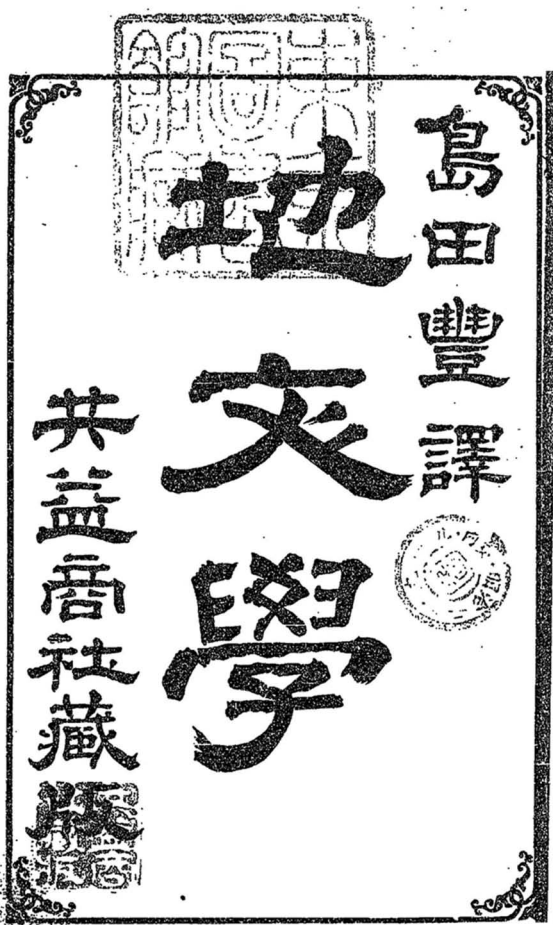 島田豐譯
地文學
共益商社藏版